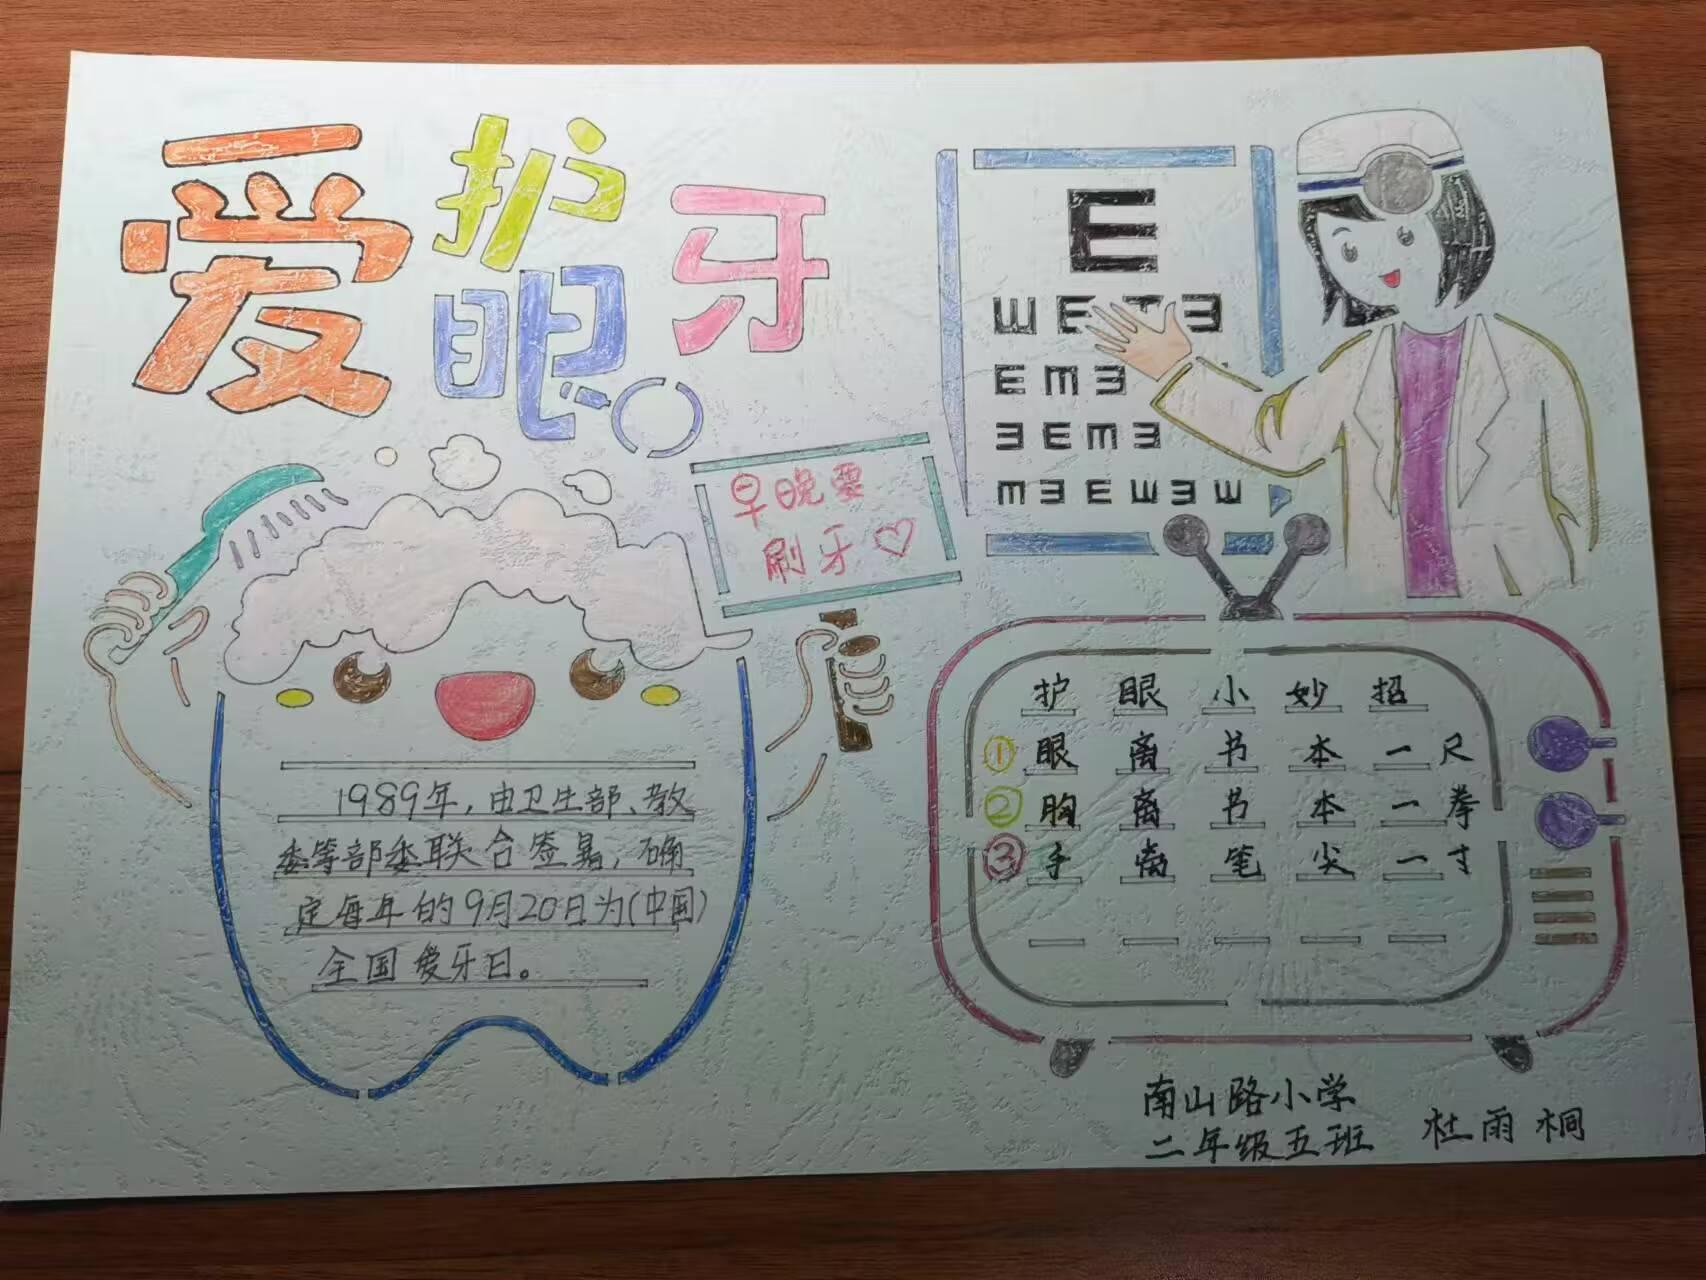 爱护眼牙
早晚要
刷牙
1989年，由卫生部、教
委等部委联合签署，确
定每年的9月20日为(中国)
全国爱牙日。
E
ШETƎ
EmƎ
ƎEmƎ
mƎEШƎШ
护眼小妙招
①眼离书本一尺
②胸离书本一拳
③手离笔尖一寸
南山路小学
二年级五班 杜雨桐